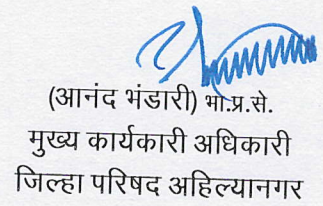 (आनंद भंडारी) भा.प्र.से.
मुख्य कार्यकारी अधिकारी
जिल्हा परिषद अहिल्यानगर